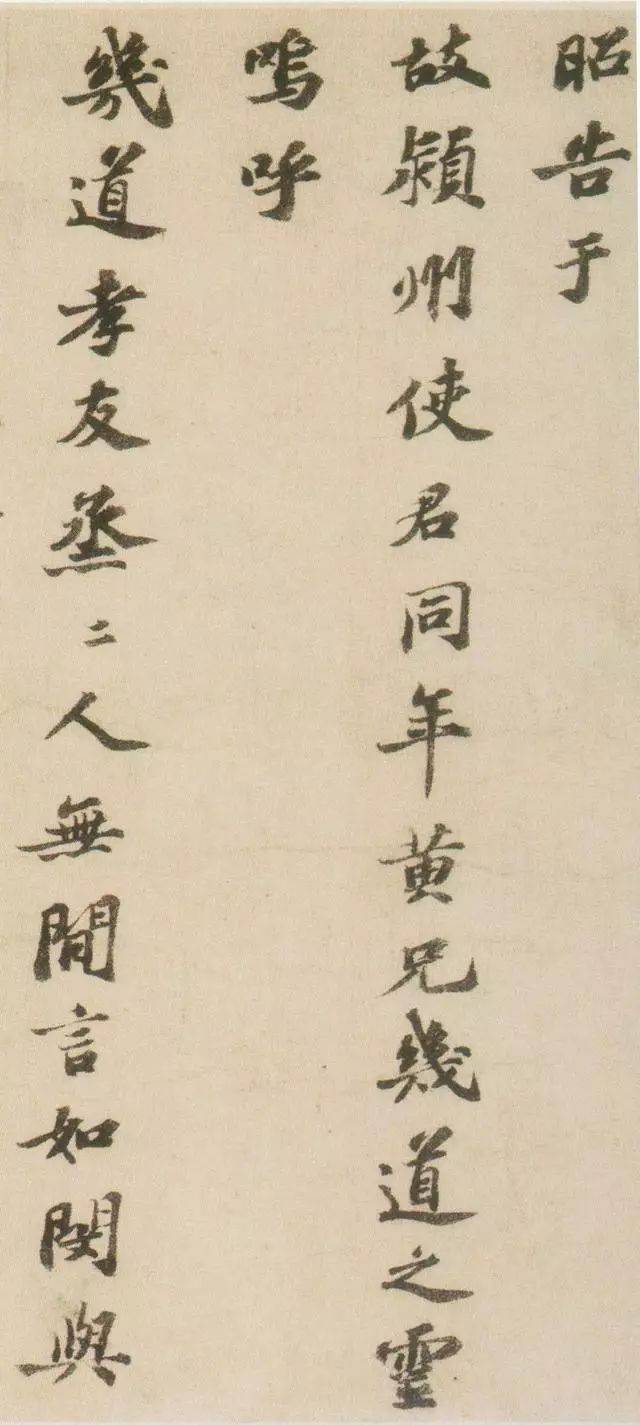 昭告于
故潁州使君同年黄兄幾道之靈
嗚呼
幾道孝友烝〻人無間言如閔與